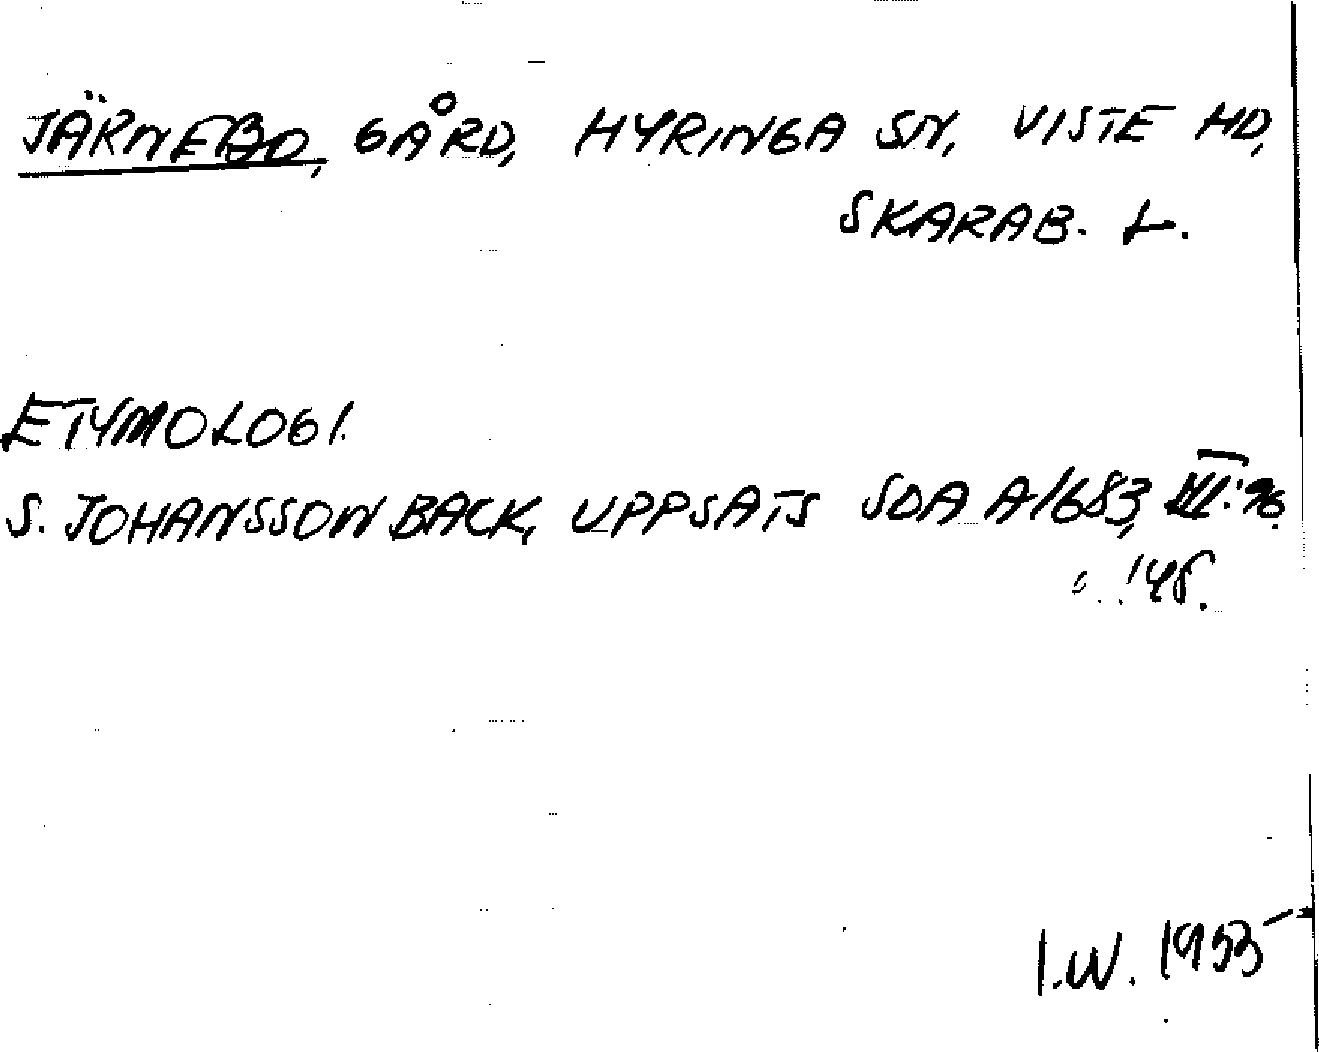 JÄRNEBO, GÅRD, HYRINGA SN, VISTE HD,
SKARAB. L.
ETYMOLOGI.
S. JOHANSSON BACK, UPPSATS SOA A1683,
I.W. 1953